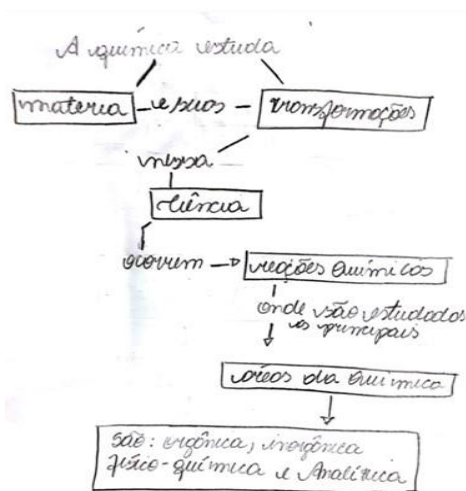 A química estuda
materia e suas transformações
nessa
ciência
ocorrem reações Químicas
onde são estudados
as principais
áreas da Química
São: orgânica, inorgânica
físico-química e Analítica